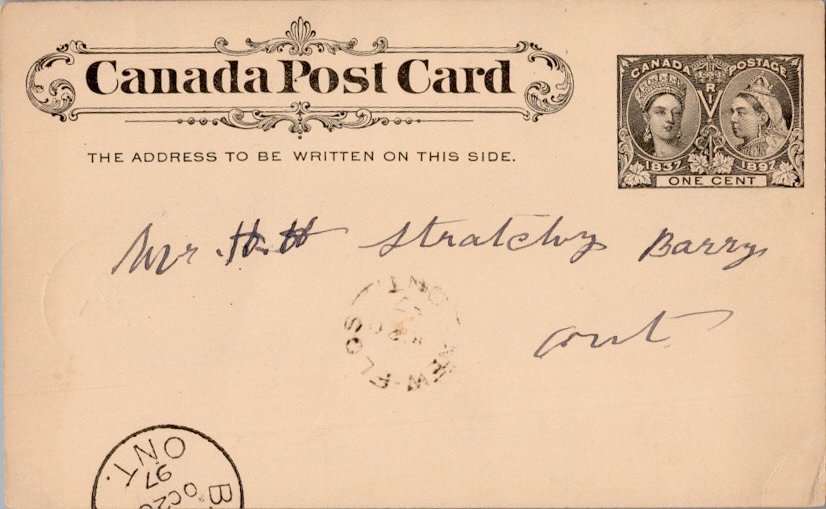 Canada Post Card
THE ADDRESS TO BE WRITTEN ON THIS SIDE.
CANADA POSTAGE
V R I
1837 1897
ONE CENT
Mr. H. H Stratchy Barry
Ont
NEW-FLOS
ONT
ONT.
97
OC 20
B